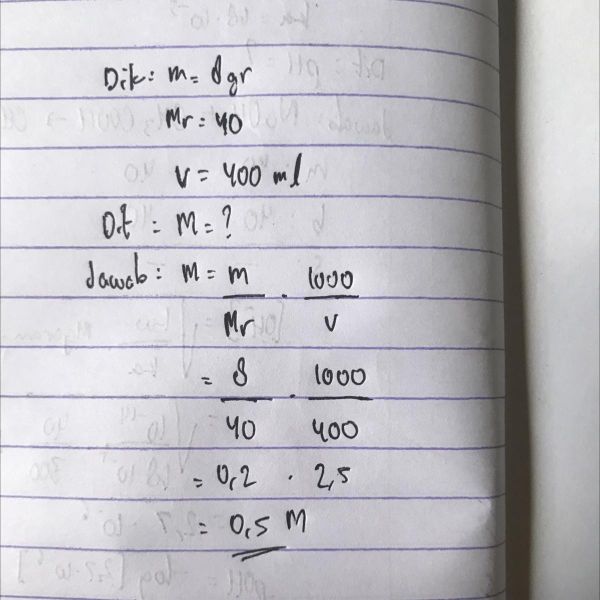 Dik: m = 8 gr
Mr = 40
V = 400 ml
Dit : M = ?
Jawab : M = m/Mr . 1000/V
= 8/40 . 1000/400
= 0,2 . 2,5
= 0,5 M